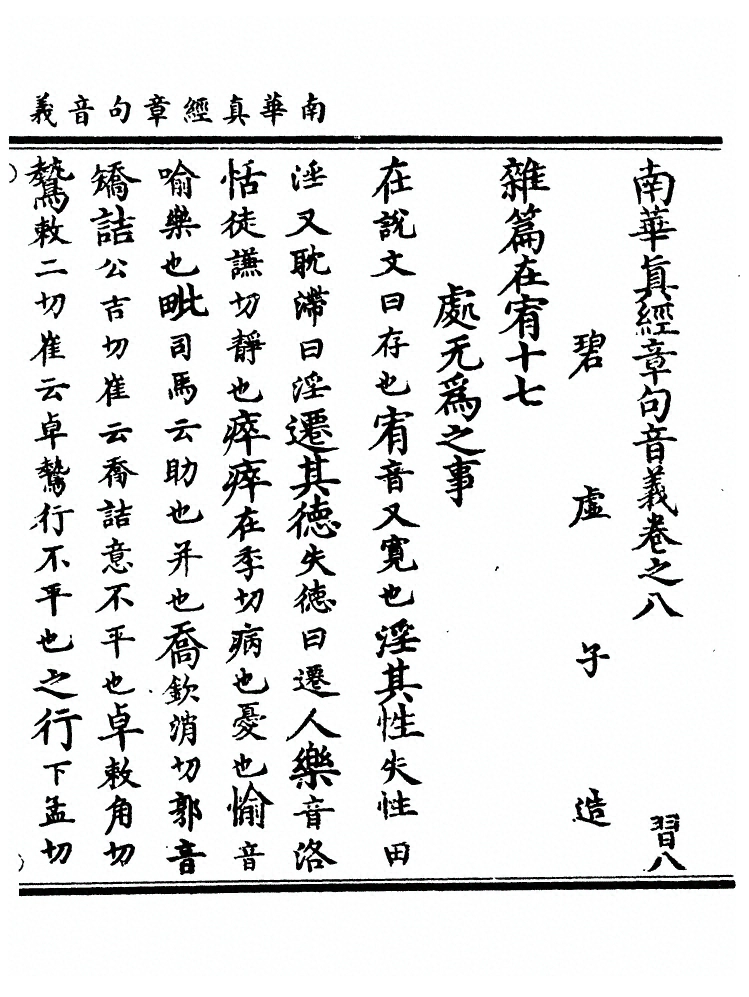 南華真經章句音義
南華眞經章句音義卷之八 習八
碧虛子造
雜篇在宥十七
處无爲之事
在說文曰存也宥音又寬也淫其性失性田
淫又耽滯曰淫遷其德失德曰遷人樂音洛
恬徒謙切靜也瘁瘁在季切病也憂也愉音
喻樂也毗司馬云助也并也喬欽消切郭音
矯詰公吉切崔云喬詰意不平也卓敕角切
鷙敕二切崔云卓鷙行不平也之行下孟切